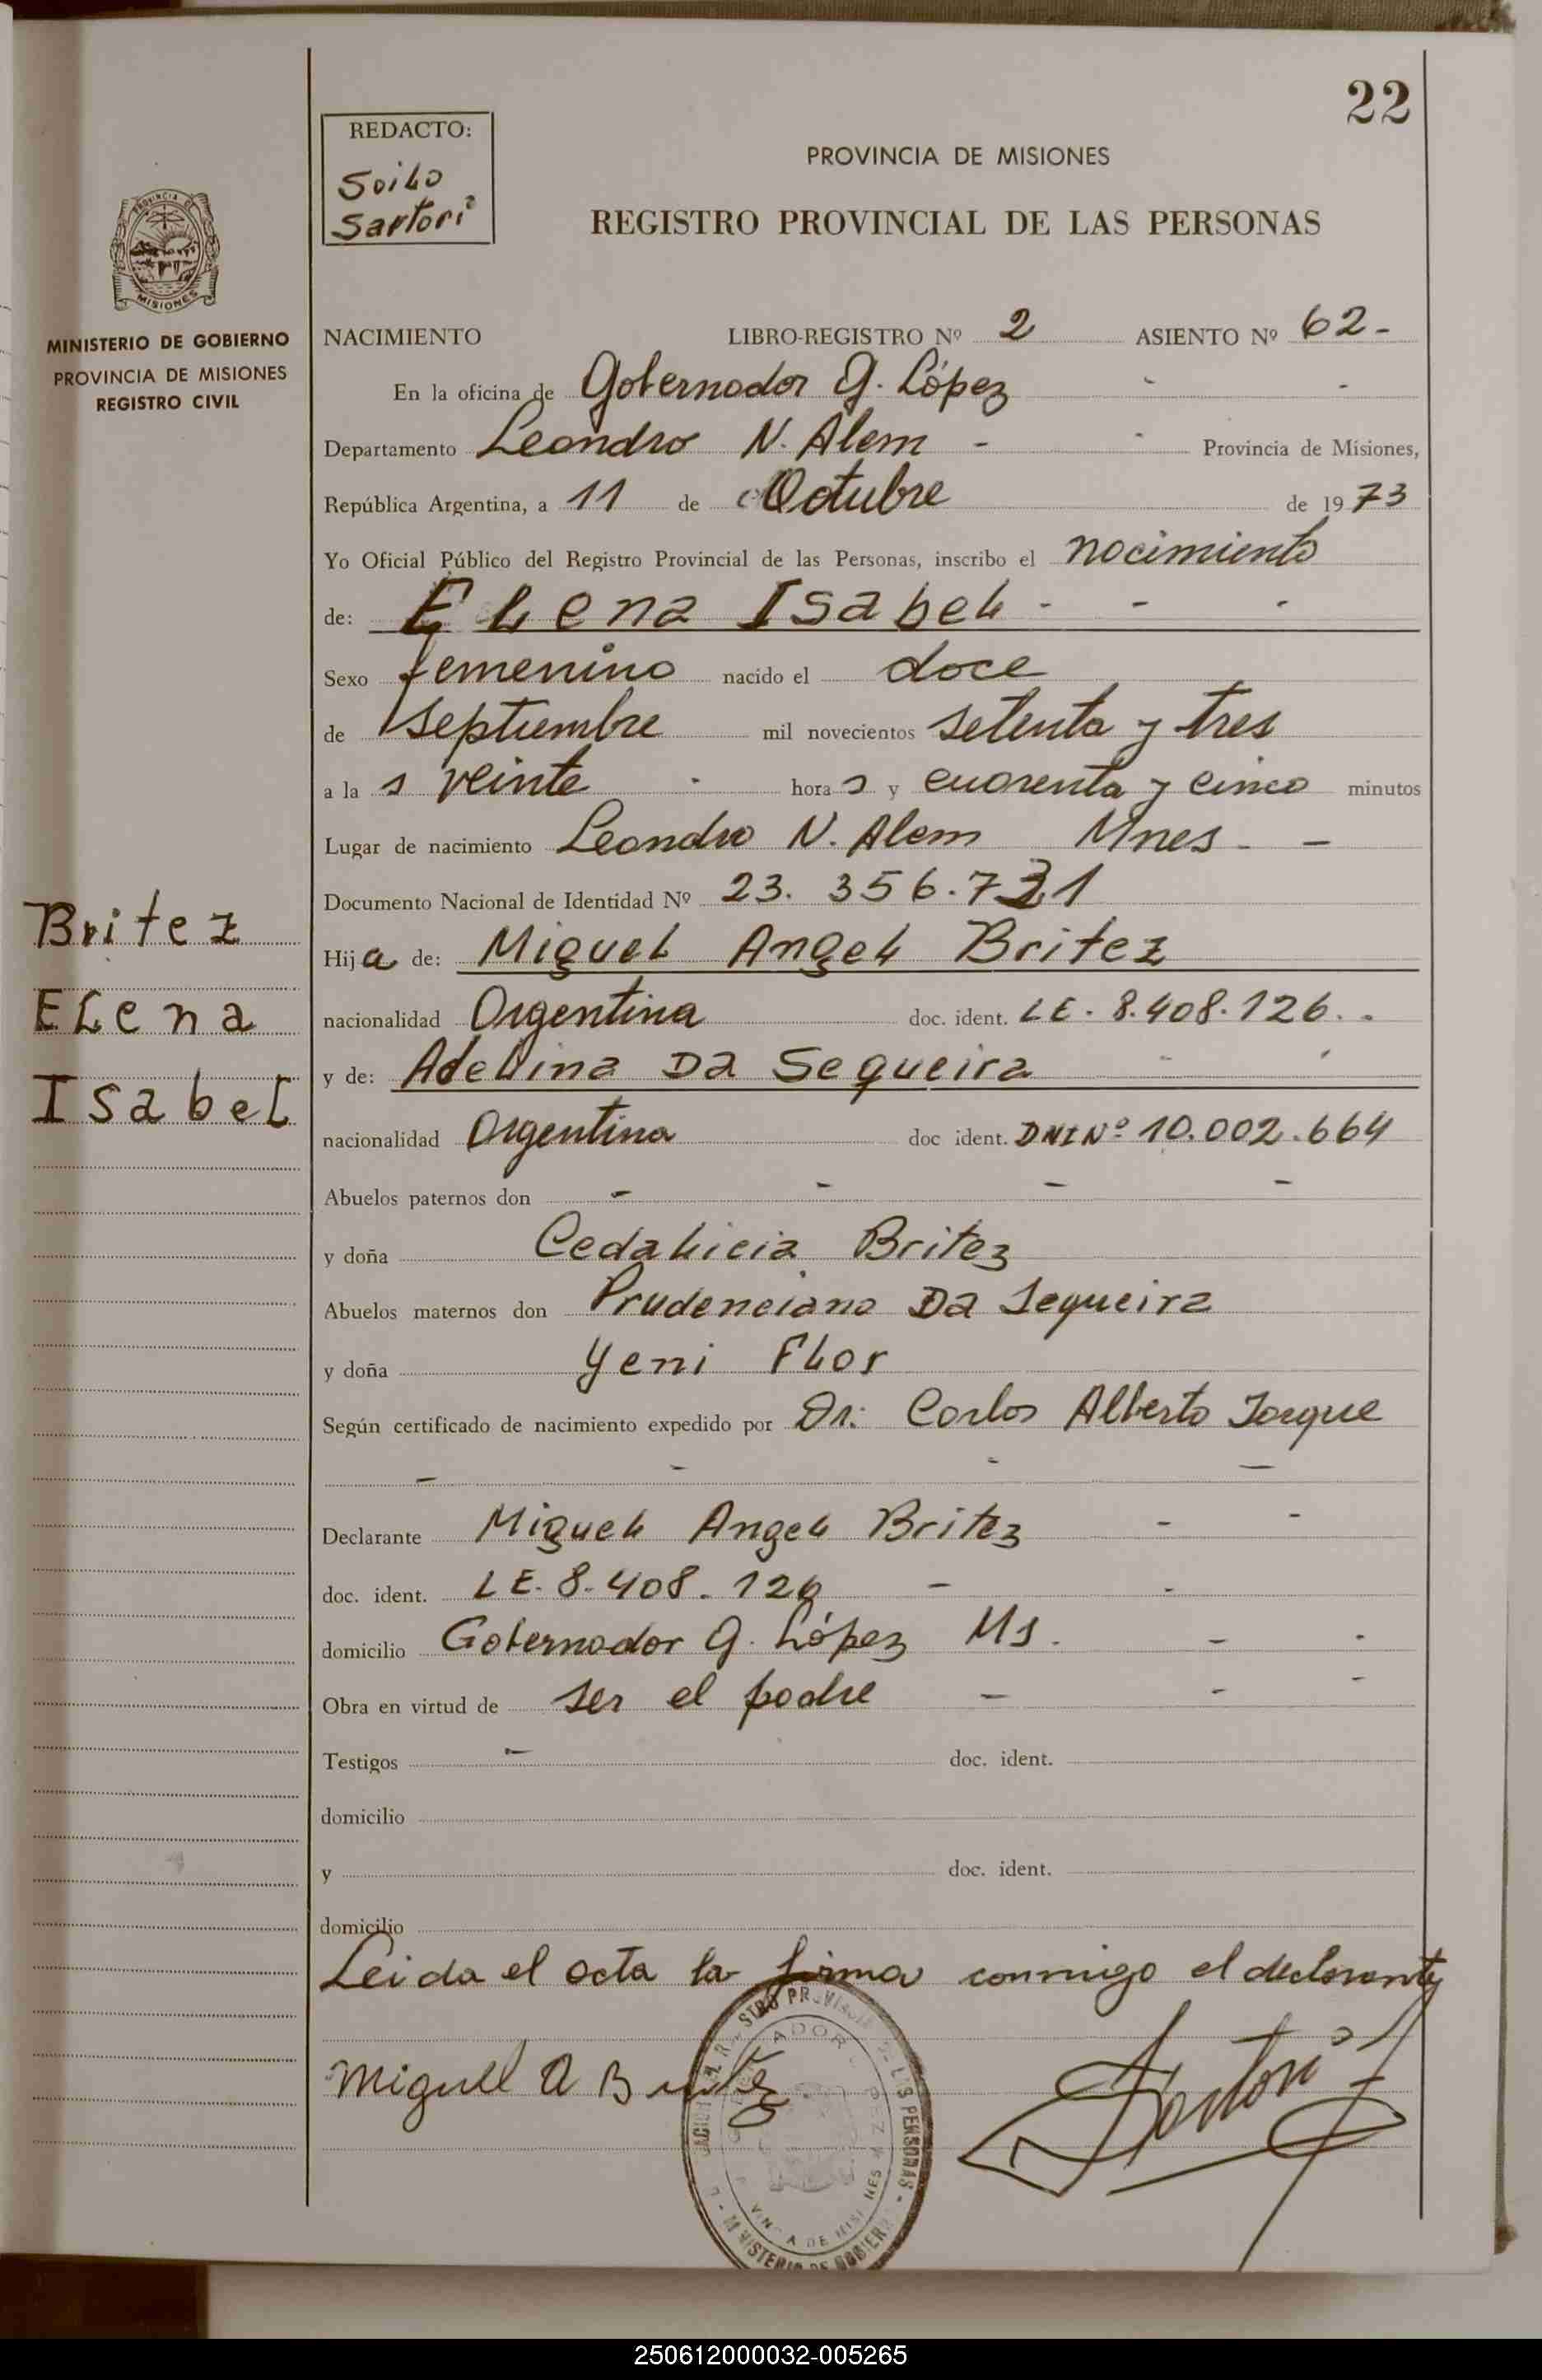 22
REDACTO:
Soilo
Sartori
PROVINCIA DE MISIONES
REGISTRO PROVINCIAL DE LAS PERSONAS
PROVINCIA DE
MISIONES
MINISTERIO DE GOBIERNO
PROVINCIA DE MISIONES
REGISTRO CIVIL
NACIMIENTO LIBRO-REGISTRO Nº 2 ASIENTO Nº 62-
En la oficina de Gobernador G. López - -
Departamento Leandro N. Alem - - Provincia de Misiones,
República Argentina, a 11 de Octubre de 1973
Yo Oficial Público del Registro Provincial de las Personas, inscribo el nacimiento
de: Elena Isabel - - -
Sexo femenino nacido el doce
de septiembre mil novecientos setenta y tres
a la s veinte - hora s y cuarenta y cinco minutos
Lugar de nacimiento Leandro N. Alem Mnes - -
Documento Nacional de Identidad Nº 23.356.731
Britez
Elena
Isabel
Hija de: Miguel Angel Britez
nacionalidad Argentina doc. ident. LE. 8.408.126. -
y de: Adelina Da Sequeira - -
nacionalidad Argentina doc ident. DNI Nº 10.002.664
Abuelos paternos don - - - -
y doña Cedalicia Britez
Abuelos maternos don Prudenciano Da Sequeira
y doña Yeni Flor
Según certificado de nacimiento expedido por Dr. Carlos Alberto
- - - -
Declarante Miguel Angel Britez - -
doc. ident. LE. 8.408.126 - -
domicilio Gobernador G. López Ms. - -
Obra en virtud de ser el padre - - -
Testigos - doc. ident.
domicilio
y doc. ident.
domicilio
Leida el acta la firma conmigo el declarante
Miguel A Britez
Sartori
MINISTERIO DE GOBIERNO
250612000032-005265